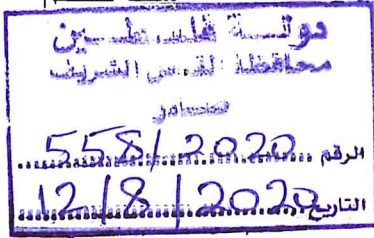 دولة فلسطين
محافظة القدس الشريف
صادر
الرقم 558/2020
التاريخ 12/8/2020